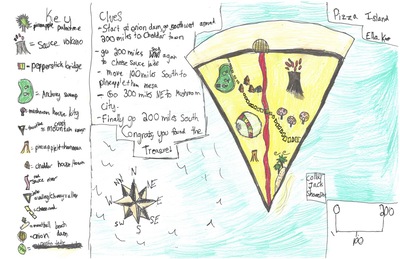 Key
pineapple palmtree
Sauce volcano
pepperstick bridge
Anchovy swamp
mushroom house city
mountain range
cheddar house town
sauce river
cheesecook
meatball beach
onion dam
Clues
- Start at onion dam go southwest around
200 miles to Cheddar town
- go 200 miles again
to cheese sauce lake
- Move 100 miles South to
pineapple mesa
- Go 300 miles NE to Mushroom
City.
- Finally go 200 miles South
Congrats you found the
Treasure!
Pizza Island
Ella
N
NE
E
SE
S
SW
W
NW
Colby
Jack
0
200
100